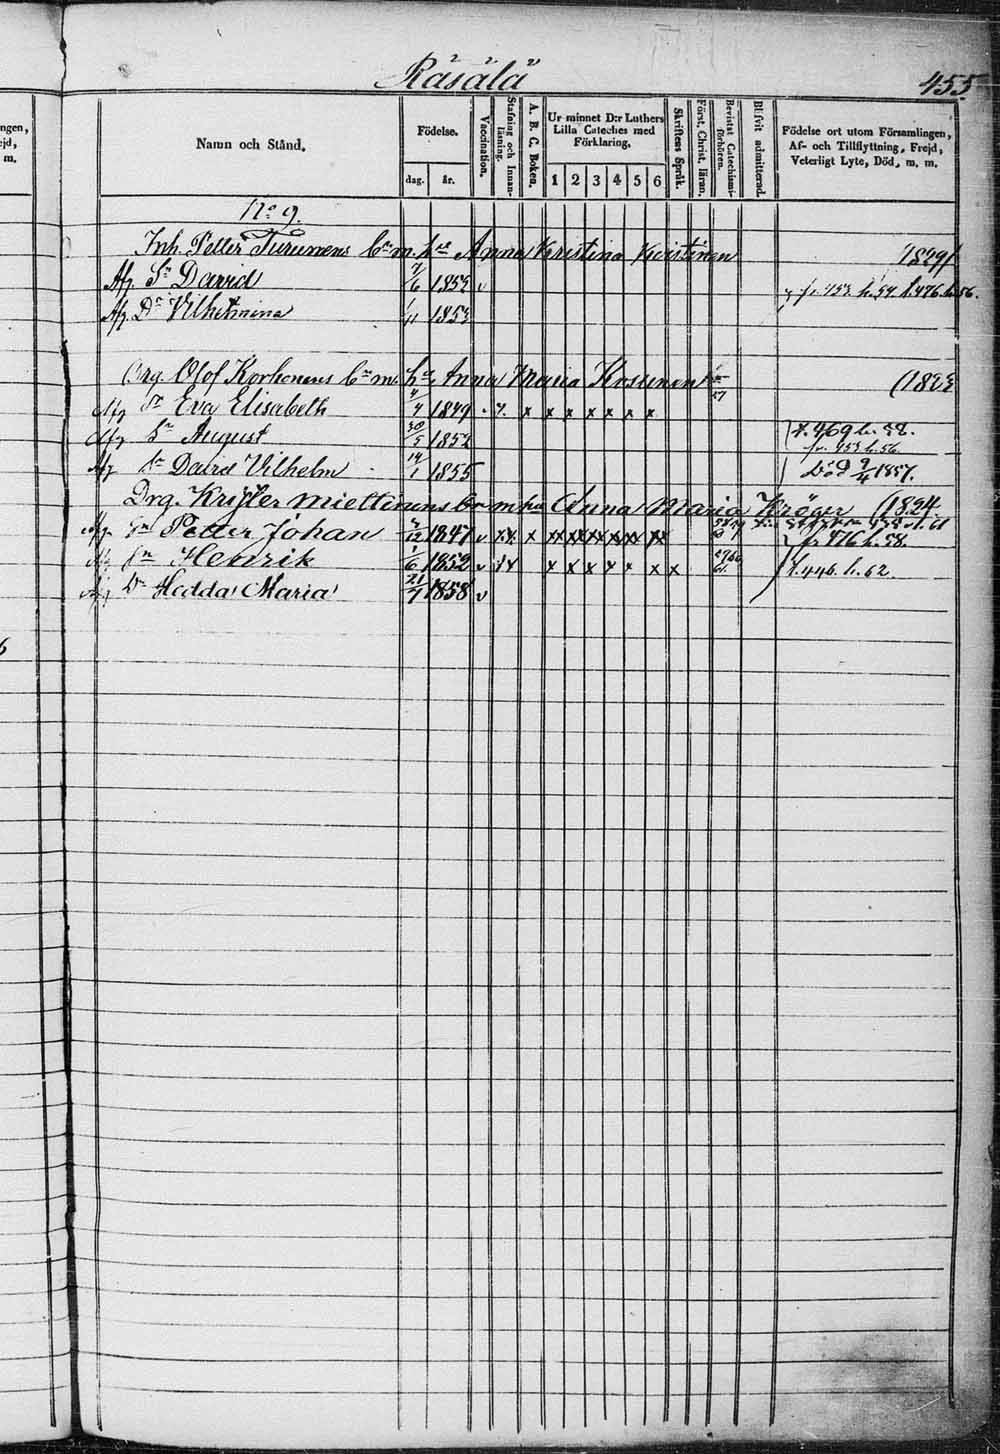 Räsälä
455
Namn och Stånd.
Födelse.
dag.
år.
Vaccination.
Stafning och Innanläsning.
A. B. C. Boken.
Ur minnet D:r Luthers Lilla Cateches med Förklaring.
1 2 3 4 5 6
Skriftens Språk.
Först. Christ. läran.
Bevistat Catechismiförhören.
Blifvit admitterad.
Födelse ort utom Församlingen, Af- och Tillflyttning, Frejd, Veterligt Lyte, Död, m. m.
No 9.
Inh. Petter Turunens bn m. hu Anna Kristina 1829
Afg Sn David 7/6 1853 v fr. 453 h. 54. f. 476. h. 56.
Afg Dr Vilhelmina 1/11 1853
Drg. Olof Korhonens bn m. hu Anna Maria (1823
Afg Dr Eva Elisabeth 4/4 1849 x x x x x x x 57
Afg Sn August 30/5 1852 f. 469 h. 58.
fr. 453 h. 56.
Afg Sn David Vilhelm 14/1 1855 Död 9/4 1857.
Drg. Krister Miettinens bn m hu Anna Maria Kröger (1824
Afg Sn Petter Johan 1847 v x xx xx xx xx xx xx fr 476 h. 58.
Afg Sn Henrik 1/6 1852 v x x x x x x x f. 446. h. 62.
Afg Dr Hedda Maria 21/7 1858 v